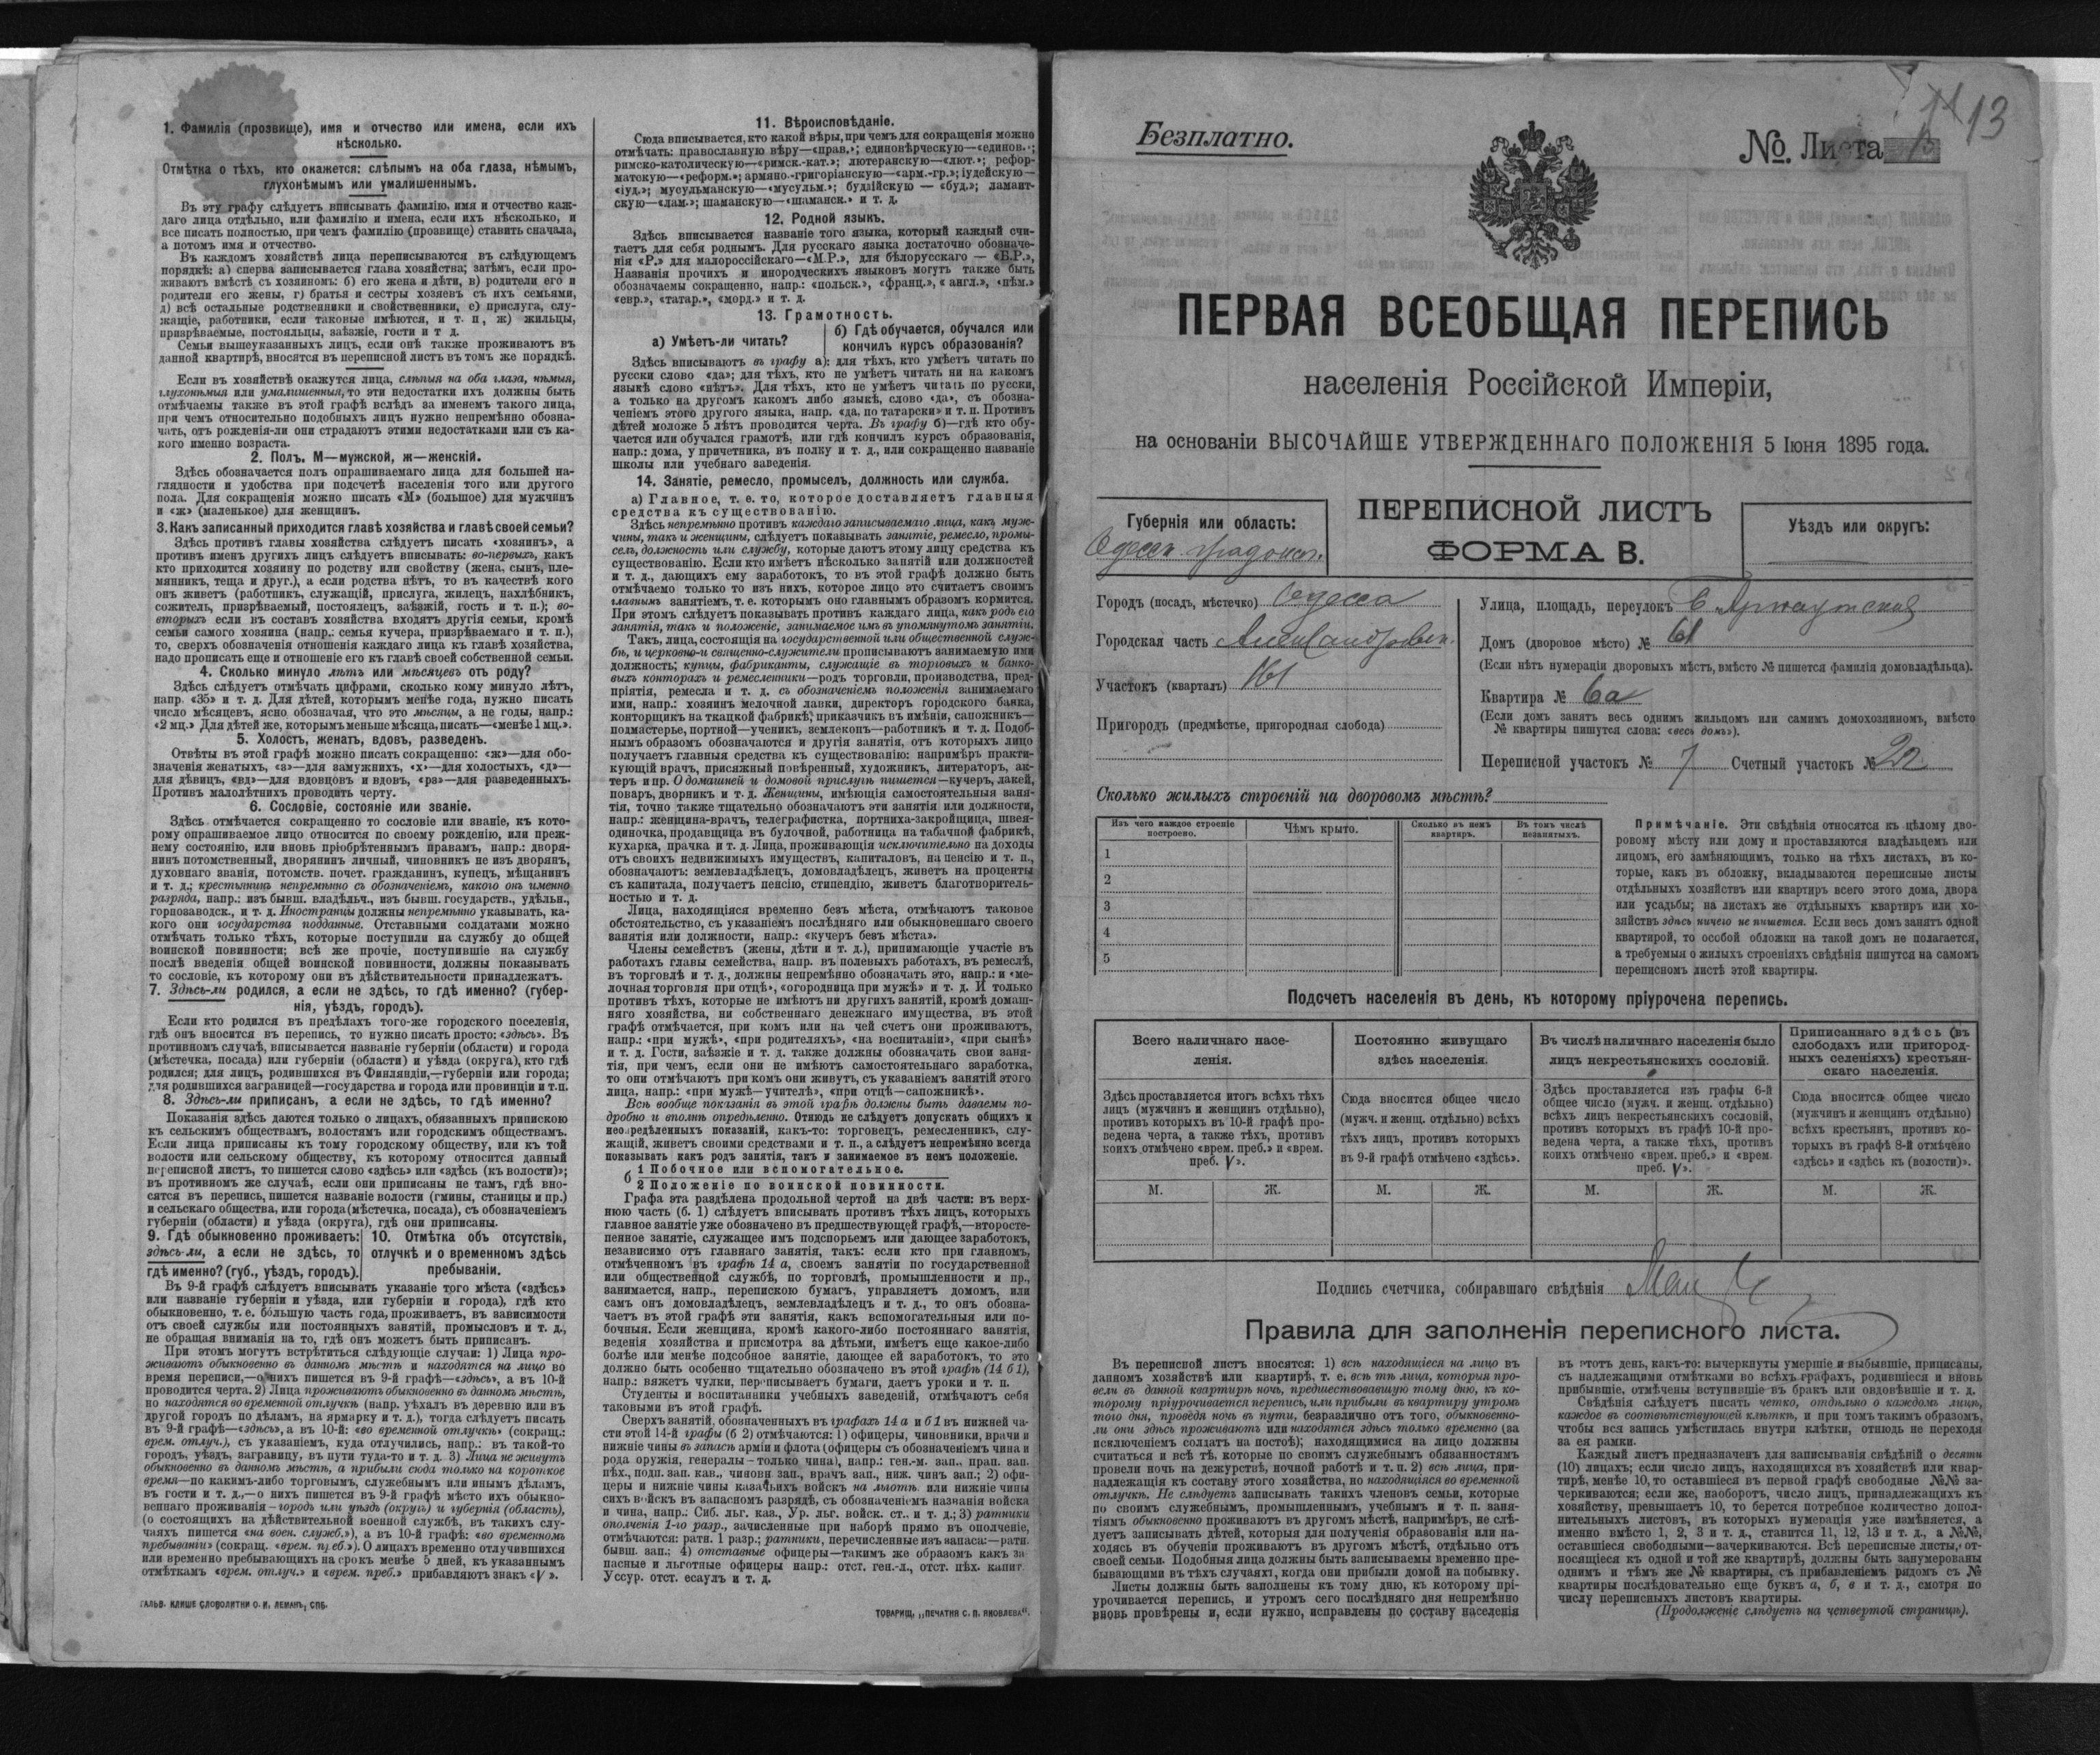 1. Фамилія (прозвище), имя и отчество или имена, если ихъ
нѣсколько.
Отмѣтка о тѣхъ, кто окажется: слѣпымъ на оба глаза, нѣмымъ,
глухонѣмымъ или умалишеннымъ.
Въ эту графу слѣдуетъ вписывать фамилію, имя и отчество каж-
даго лица отдѣльно, или фамилію и имена, если ихъ нѣсколько, и
все писать полностью, при чемъ фамилію (прозвище) ставить сначала,
а потомъ имя и отчество.
Въ каждомъ хозяйствѣ лица переписываются въ слѣдующемъ
порядкѣ: а) сперва записывается глава хозяйства; затѣмъ, если про-
живаютъ вмѣстѣ съ хозяиномъ: б) его жена и дѣти, в) родители его и
родители его жены, г) братья и сестры хозяевъ съ ихъ семьями,
д) всѣ остальные родственники и свойственники, е) прислуга, слу-
жащіе, работники, если таковые имѣются, и т. п, ж) жильцы,
призрѣваемые, постояльцы, заѣзжіе, гости и т д.
Семьи вышеуказанныхъ лицъ, если онѣ также проживаютъ въ
данной квартирѣ, вносятся въ переписной листъ въ томъ же порядкѣ.
Если въ хозяйствѣ окажутся лица, слѣпыя на оба глаза, нѣмыя,
глухонѣмыя или умалишенныя, то эти недостатки ихъ должны быть
отмѣчаемы также въ этой графѣ вслѣдъ за именемъ такого лица,
при чемъ относительно подобныхъ лицъ нужно непремѣнно обозна-
чать, отъ рожденія-ли они страдаютъ этими недостатками или съ ка-
кого именно возраста.
2. Полъ. М—мужской, ж—женскій.
Здѣсь обозначается полъ опрашиваемаго лица для большей на-
глядности и удобства при подсчетѣ населенія того или другого
пола. Для сокращенія можно писать «М» (большое) для мужчинъ
и «ж» (маленькое) для женщинъ.
3. Какъ записанный приходится главѣ хозяйства и главѣ своей семьи?
Здѣсь противъ главы хозяйства слѣдуетъ писать «хозяинъ», а
противъ именъ другихъ лицъ слѣдуетъ вписывать: во-первыхъ, какъ
кто приходится хозяину по родству или свойству (жена, сынъ, пле-
мянникъ, теща и друг.), а если родства нѣтъ, то въ качествѣ кого
онъ живетъ (работникъ, служащій, прислуга, жилецъ, нахлѣбникъ,
сожитель, призрѣваемый, постоялецъ, заѣзжій, гость и т. п.); во-
вторыхъ если въ составъ хозяйства входятъ другія семьи, кромѣ
семьи самого хозяина (напр.: семья кучера, призрѣваемаго и т. п.),
то, сверхъ обозначенія отношенія каждаго лица къ главѣ хозяйства,
надо прописать еще и отношеніе его къ главѣ своей собственной семьи.
4. Сколько минуло лѣтъ или мѣсяцевъ отъ роду?
Здѣсь слѣдуетъ отмѣчать цифрами, сколько кому минуло лѣтъ,
напр. «35» и т. д. Для дѣтей, которымъ менѣе года, нужно писать
число мѣсяцевъ, ясно обозначая, что это мѣсяцы, а не годы, напр.:
«2 мц.» Для дѣтей же, которымъ меньше мѣсяца, писать—«менѣе 1 мц.».
5. Холостъ, женатъ, вдовъ, разведенъ.
Отвѣты въ этой графѣ можно писать сокращенно: «ж»—для обо-
значенія женатыхъ, «з»—для замужнихъ, «х»—для холостыхъ, «д»—
для дѣвицъ, «вд»—для вдовцовъ и вдовъ, «рз»—для разведенныхъ.
Противъ малолѣтнихъ проводить черту.
6. Сословіе, состояніе или званіе.
Здѣсь отмѣчается сокращенно то сословіе или званіе, къ кото-
рому опрашиваемое лицо относится по своему рожденію, или преж-
нему состоянію, или вновь пріобрѣтеннымъ правамъ, напр.: дворя-
нинъ потомственный, дворянинъ личный, чиновникъ не изъ дворянъ,
духовнаго званія, потомств. почет. гражданинъ, купецъ, мѣщанинъ
и т. д.; крестьянинъ непремѣнно съ обозначеніемъ, какого онъ именно
разряда, напр.: изъ бывш. владѣльч., изъ бывш. государств., удѣльн.,
горнозаводск., и т. д. Иностранцы должны непремѣнно указывать, ка-
кого они государства подданные. Отставными солдатами можно
отмѣчать только тѣхъ, которые поступили на службу до общей
воинской повинности; всѣ же прочіе, поступившіе на службу
послѣ введенія общей воинской повинности, должны показывать
то сословіе, къ которому они въ дѣйствительности принадлежатъ.
7. Здѣсь-ли родился, а если не здѣсь, то гдѣ именно? (губер-
нія, уѣздъ, городъ).
Если кто родился въ предѣлахъ того-же городского поселенія,
гдѣ онъ вносится въ перепись, то нужно писать просто: «здѣсь». Въ
противномъ случаѣ, вписывается названіе губерніи (области) и города
(мѣстечка, посада) или губерніи (области) и уѣзда (округа), кто гдѣ
родился; для лицъ, родившихся въ Финляндіи,—губерніи или города;
для родившихся заграницей—государства и города или провинціи и т.п.
8. Здѣсь-ли приписанъ, а если не здѣсь, то гдѣ именно?
Показанія здѣсь даются только о лицахъ, обязанныхъ припискою
къ сельскимъ обществамъ, волостямъ или городскимъ обществамъ.
Если лица приписаны къ тому городскому обществу, или къ той
волости или сельскому обществу, къ которому относится данный
переписной листъ, то пишется слово «здѣсь» или «здѣсь (къ волости)»;
въ противномъ же случаѣ, если они приписаны не тамъ, гдѣ вно-
сятся въ перепись, пишется названіе волости (гмины, станицы и пр.)
и сельскаго общества, или города (мѣстечка, посада), съ обозначеніемъ
губерніи (области) и уѣзда (округа), гдѣ они приписаны.
9. Гдѣ обыкновенно проживаетъ:
здѣсь-ли, а если не здѣсь, то
гдѣ именно? (губ., уѣздъ, городъ).
10. Отмѣтка объ отсутствіи,
отлучкѣ и о временномъ здѣсь
пребываніи.
Въ 9-й графѣ слѣдуетъ вписывать указаніе того мѣста («здѣсь»
или названіе губерніи и уѣзда, или губерніи и города), гдѣ кто
обыкновенно, т. е. бо́льшую часть года, проживаетъ, въ зависимости
отъ своей службы или постоянцыхъ занятій, промысловъ и т. д.,
не обращая вниманія на то, гдѣ онъ можетъ быть приписанъ.
При этомъ могутъ встрѣтиться слѣдующіе случаи: 1) Лица про-
живаютъ обыкновенно въ данномъ мѣстѣ и находятся на лицо во
время переписи,—о нихъ пишется въ 9-й графѣ—«здѣсь», а въ 10-й
проводится черта. 2) Лица проживаютъ обыкновенно въ данномъ мѣстѣ,
но находятся во временной отлучкѣ (напр. уѣхалъ въ деревню или въ
другой городъ по дѣламъ, на ярмарку и т. д.), тогда слѣдуетъ писать
въ 9-й графѣ—«здѣсь», а въ 10-й: «во временной отлучкѣ» (сокращ.:
врем. отлуч.), съ указаніемъ, куда отлучились, напр.: въ такой-то
городъ, уѣздъ, заграницу, въ пути туда-то и т. д. 3) Лица не живутъ
обыкновенно въ данномъ мѣстѣ, а прибыли сюда только на короткое
время—по какимъ-либо торговымъ, служебнымъ или инымъ дѣламъ,
въ гости и т. д.,—о нихъ пишется въ 9-й графѣ мѣсто ихъ обыкно-
веннаго проживанія—городъ или уѣздъ (округъ) и губернія (область),
(о состоящихъ на дѣйствительной военной службѣ, въ такихъ слу-
чаяхъ пишется «на воен. служб.»), а въ 10-й графѣ: «во временномъ
пребываніи» (сокращ. «врем. преб.»). О лицахъ временно отлучившихся
или временно пребывающихъ на срокъ менѣе 5 дней, къ указаннымъ
отмѣткамъ «врем. отлуч.» и «врем. преб.» прибавляютъ знакъ «V».
ГАЛЬВ. КЛИШЕ СЛОВОЛИТНИ О. И. ЛЕМАНЪ, СПБ.
11. Вѣроисповѣданіе.
Сюда вписывается, кто какой вѣры, при чемъ для сокращенія можно
отмѣчать: православную вѣру—«прав.»; единовѣрческую—«единов.»;
римско-католическую—«римск.-кат.»; лютеранскую—«лют.»; рефор-
матскую—«реформ.»; армяно-григоріанскую—«арм.-гр.»; іудейскую—
«іуд.»; мусульманскую—«мусульм.»; буддійскую — «буд.»; ламаит-
скую—«лам.»; шаманскую—«шаманск.» и т. д.
12. Родной языкъ.
Здѣсь вписывается названіе того языка, который каждый счи-
таетъ для себя роднымъ. Для русскаго языка достаточно обозначе-
нія «Р.» для малороссійскаго—«М.Р.», для бѣлорусскаго — «Б.Р.»,
Названія прочихъ и инородческихъ языковъ могутъ также быть
обозначаемы сокращенно, напр.: «польск.», «франц.», « англ.», «нѣм.»
«евр.», «татар.», «морд.» и т. д.
13. Грамотность.
а) Умѣетъ-ли читать?
б) Гдѣ обучается, обучался или
кончилъ курсъ образованія?
Здѣсь вписываютъ въ графу а): для тѣхъ, кто умѣетъ читать по
русски слово «да»; для тѣхъ, кто не умѣетъ читать ни на какомъ
языкѣ слово «нѣтъ». Для тѣхъ, кто не умѣетъ читать по русски,
а только на другомъ какомъ либо языкѣ, слово «да», съ обозна-
ченіемъ этого другого языка, напр. «да, по татарски» и т. п. Противъ
дѣтей моложе 5 лѣтъ проводится черта. Въ графу б)—гдѣ кто обу-
чается или обучался грамотѣ, или гдѣ кончилъ курсъ образованія,
напр.: дома, у причетника, въ полку и т. д., или сокращенно названіе
школы или учебнаго заведенія.
14. Занятіе, ремесло, промыселъ, должность или служба.
а) Главное, т. е. то, которое доставляетъ главныя
средства къ существованію.
Здѣсь непремѣнно противъ каждаго записываемаго лица, какъ муж-
чины, такъ и женщины, слѣдуетъ показывать занятіе, ремесло, промы-
селъ, должность или службу, которые даютъ этому лицу средства къ
существованію. Если кто имѣетъ нѣсколько занятій или должностей
и т. д., дающихъ ему заработокъ, то въ этой графѣ должно быть
отмѣчаемо только то изъ нихъ, которое лицо это считаетъ своимъ
главнымъ занятіемъ, т. е. которымъ оно главнымъ образомъ кормится.
При этомъ слѣдуетъ показывать противъ каждаго лица, какъ родъ его
занятія, такъ и положеніе, занимаемое имъ въ упомянутомъ занятіи.
Такъ, лица, состоящія на государственной или общественной служ-
бѣ, и церковно-и священно-служители прописываютъ занимаемую ими
должность; купцы, фабриканты, служащіе въ торговыхъ и банко-
выхъ конторахъ и ремесленники—родъ торговли, производства, пред-
пріятія, ремесла и т. д. съ обозначеніемъ положенія занимаемаго
ими, напр.: хозяинъ мелочной лавки, директоръ городского банка,
конторщикъ на ткацкой фабрикѣ, приказчикъ въ имѣніи, сапожникъ—
подмастерье, портной—ученикъ, землекопъ—работникъ и т. д. Подоб-
нымъ образомъ обозначаются и другія занятія, отъ которыхъ лицо
получаетъ главныя средства къ существованію: напримѣръ практи-
кующій врачъ, присяжный повѣренный, художникъ, литераторъ, ак-
теръ и пр. О домашней и домовой прислугѣ пишется—кучеръ, лакей,
поваръ, дворникъ и т. д. Женщины, имѣющія самостоятельныя заня-
тія, точно также тщательно обозначаютъ эти занятія или должности,
напр.: женщина-врачъ, телеграфистка, портниха-закройщица, швея-
одиночка, продавщица въ булочной, работница на табачной фабрикѣ,
кухарка, прачка и т. д. Лица, проживающія исключительно на доходы
отъ своихъ недвижимыхъ имуществъ, капиталовъ, на пенсію и т. п.,
обозначаютъ: землевладѣлецъ, домовладѣлецъ, живетъ на проценты
съ капитала, получаетъ пенсію, стипендію, живетъ благотворитель-
ностью и т. д.
Лица, находящіяся временно безъ мѣста, отмѣчаютъ таковое
обстоятельство, съ указаніемъ послѣдняго или обыкновеннаго своего
занятія или должности, напр.: «кучеръ безъ мѣста».
Члены семействъ (жены, дѣти и т. д.), принимающіе участіе въ
работахъ главы семейства, напр. въ полевыхъ работахъ, въ ремеслѣ,
въ торговлѣ и т. д., должны непремѣнно обозначать это, напр.: и «ме-
лочная торговля при отцѣ», «огородница при мужѣ» и т. д. И только
противъ тѣхъ, которые не имѣютъ ни другихъ занятій, кромѣ домаш-
няго хозяйства, ни собственнаго денежнаго имущества, въ этой
графѣ отмѣчается, при комъ или на чей счетъ они проживаютъ,
напр.: «при мужѣ», «при родителяхъ», «на воспитаніи», «при сынѣ»
и т. д. Гости, заѣзжіе и т. д. также должны обозначать свои заня-
тія, при чемъ, если они не имѣютъ самостоятельнаго заработка,
то они отмѣчаютъ при комъ они живутъ, съ указаніемъ занятій этого
лица, напр.: «при мужѣ—учителѣ», «при отцѣ—сапожникѣ».
Всѣ вообще показанія въ этой графѣ должны быть даваемы по-
дробно и вполнѣ опредѣленно. Отнюдь не слѣдуетъ допускать общихъ и
неопредѣленныхъ показаній, какъ-то: торговецъ, ремесленникъ, слу-
жащій, живетъ своими средствами и т. п., а слѣдуетъ непремѣнно всегда
показывать какъ родъ занятія, такъ и занимаемое въ немъ положеніе.
б 1 Побочное или вспомогательное.
2 Положеніе по воинской повинности.
Графа эта раздѣлена продольной чертой на двѣ части: въ верх-
нюю часть (б. 1) слѣдуетъ вписывать противъ тѣхъ лицъ, которыхъ
главное занятіе уже обозначено въ предшествующей графѣ,—второсте-
пенное занятіе, служащее имъ подспорьемъ или дающее заработокъ,
независимо отъ главнаго занятія, такъ: если кто при главномъ,
отмѣченномъ въ графѣ 14 а, своемъ занятіи по государственной
или общественной службѣ, по торговлѣ, промышленности и пр.,
занимается, напр., перепискою бумагъ, управляетъ домомъ, или
самъ онъ домовладѣлецъ, землевладѣлецъ и т. д., то онъ обозна-
чаетъ въ этой графѣ эти занятія, какъ вспомогательныя или по-
бочныя. Если женщина, кромѣ какого-либо постояннаго занятія,
веденія хозяйства и присмотра за дѣтьми, имѣетъ еще какое-либо
болѣе или менѣе подсобное занятіе, дающее ей заработокъ, то это
должно быть особенно тщательно обозначено въ этой графѣ (14 б 1),
напр.: вяжетъ чулки, переписываетъ бумаги, даетъ уроки и т. п.
Студенты и воспитанники учебныхъ заведеній, отмѣчаютъ себя
таковыми въ этой графѣ.
Сверхъ занятій, обозначенныхъ въ графахъ 14 а и б 1 въ нижней ча-
сти этой 14-й графы (б 2) отмѣчаются: 1) офицеры, чиновники, врачи и
нижніе чины въ запасѣ арміи и флота (офицеры съ обозначеніемъ чина и
рода оружія, генералы—только чина), напр.: ген-м. зап., прап. зап.
пѣх., подп. зап. кав., чиновн зап., врачъ зап., ниж. чинъ зап.; 2) офи-
церы и нижніе чины казачьихъ войскъ на льготѣ. или нижніе чины
сихъ войскъ въ запасномъ разрядѣ, съ обозначеніемъ названія войска
и чина, напр.: Сиб. льг. каз., Ур. льг. войск. ст.. и т. д.; 3) ратники
ополченія 1-го разр., зачисленные при наборѣ прямо въ ополченіе,
отмѣчаются: ратн. 1 разр.; ратники, перечисленные изъ запаса:—ратн.
бывш. зап.; 4) отставные офицеры—такимъ же образомъ какъ за-
пасные и льготные офицеры напр.: отст. ген.-л., отст. пѣх. капит
Уссур. отст. есаулъ и т. д.
ТОВАРИЩ. „ПЕЧАТНЯ С. П. ЯКОВЛЕВА".
13
Безплатно.
№. Листа
ПЕРВАЯ ВСЕОБЩАЯ ПЕРЕПИСЬ
населенія Россійской Имперіи,
на основаніи ВЫСОЧАЙШЕ УТВЕРЖДЕННАГО ПОЛОЖЕНІЯ 5 Іюня 1895 года.
ПЕРЕПИСНОЙ ЛИСТЪ
ФОРМА В.
Губернія или область:
Одесск. градонач.
Уѣздъ или округъ:
Городъ (посадъ, мѣстечко) Одесса
Городская часть Александровск.
Участокъ (кварталъ) 161
Пригородъ (предмѣстье, пригородная слобода)
Улица, площадь, переулокъ Б Арнаутская
Домъ (дворовое мѣсто) № 61
(Если нѣтъ нумераціи дворовыхъ мѣстъ, вмѣсто № пишется фамилія домовладѣльца).
Квартира № 6а
(Если домъ занятъ весь однимъ жильцомъ или самимъ домохозяиномъ, вмѣсто
№ квартиры пишутся слова: «весь домъ»).
Переписной участокъ № 7 Счетный участокъ №
Сколько жилыхъ строеній на дворовомъ мѣстѣ?
Изъ чего каждое строеніе
построено.
Чѣмъ крыто.
Сколько въ немъ
квартиръ.
Въ томъ числѣ
незанятыхъ.
1
2
3
4
5
Примѣчаніе. Эти свѣдѣнія относятся къ цѣлому дво-
ровому мѣсту или дому и проставляются владѣльцемъ или
лицомъ, его замѣняющимъ, только на тѣхъ листахъ, въ ко-
торые, какъ въ обложку, вкладываются переписные листы
отдѣльныхъ хозяйствъ или квартиръ всего этого дома, двора
или усадьбы; на листахъ же отдѣльныхъ квартиръ или хо-
зяйствъ здѣсь ничего не пишется. Если весь домъ занятъ одной
квартирой, то особой обложки на такой домъ не полагается,
а требуемыя о жилыхъ строеніяхъ свѣдѣнія пишутся на самомъ
переписномъ листѣ этой квартиры.
Подсчетъ населенія въ день, къ которому пріурочена перепись.
Всего наличнаго насе-
ленія.
Здѣсь проставляется итогъ всѣхъ тѣхъ
лицъ (мужчинъ и женщинъ отдѣльно),
противъ которыхъ въ 10-й графѣ про-
ведена черта, а также тѣхъ, противъ
коихъ отмѣчено «врем. преб.» и «врем.
преб. V».
Постоянно живущаго
здѣсь населенія.
Сюда вносится общее число
(мужч. и женщ. отдѣльно) всѣхъ
тѣхъ лицъ, противъ которыхъ
въ 9-й графѣ отмѣчено «здѣсь».
Въ числѣ наличнаго населенія было
лицъ некрестьянскихъ сословій.
Здѣсь проставляется изъ графы 6-й
общее число (мужч. и женщ. отдѣльно)
всѣхъ лицъ некрестьянскихъ сословій,
противъ которыхъ въ графѣ 10-й про-
ведена черта, а также тѣхъ, противъ
коихъ отмѣчено «врем. преб.» и «врем.
преб. V».
Приписаннаго здѣсь (въ
слободахъ или пригород-
ныхъ селеніяхъ) крестьян-
скаго населенія.
Сюда вносится общее число
(мужчинъ и женщинъ отдѣльно)
всѣхъ крестьянъ, противъ ко-
торыхъ въ графѣ 8-й отмѣчено
«здѣсь» и «здѣсь къ (волости)».
М. Ж. М. Ж. М. Ж. М. Ж.
Подпись счетчика, собиравшаго свѣдѣнія
Правила для заполненія переписного листа.
Въ переписной листъ вносятся: 1) всѣ находящіеся на лицо въ
данномъ хозяйствѣ или квартирѣ, т. е. всѣ тѣ лица, которыя про-
вели въ данной квартирѣ ночь, предшествовавшую тому дню, къ ко-
торому пріурочивается перепись, или прибыли въ квартиру утромъ
того дня, проведя ночь въ пути, безразлично отъ того, обыкновенно-
ли они здѣсь проживаютъ или находятся здѣсь только временно (за
исключеніемъ солдатъ на постоѣ); находящимися на лицо должны
считаться и всѣ тѣ, которые по своимъ служебнымъ обязанностямъ
провели ночь на дежурствѣ, ночной работѣ и т. п. 2) всѣ лица, при-
надлежащія къ составу этого хозяйства, но находящіяся во временной
отлучкѣ. Не слѣдуетъ записывать такихъ членовъ семьи, которые
по своимъ служебнымъ, промышленнымъ, учебнымъ и т. п. заня-
тіямъ обыкновенно проживаютъ въ другомъ мѣстѣ, напримѣръ, не слѣ-
дуетъ записывать дѣтей, которыя для полученія образованія или на-
ходясь въ обученіи проживаютъ въ другомъ мѣстѣ, отдѣльно отъ
своей семьи. Подобныя лица должны быть записываемы временно пре-
бывающими въ тѣхъ случаяхъ, когда они прибыли домой на побывку.
Листы должны быть заполнены къ тому дню, къ которому прі-
урочивается перепись, и утромъ сего послѣдняго дня непремѣнно
вновь провѣрены и, если нужно, исправлены по составу населенія
въ этотъ день, какъ-то: вычеркнуты умершіе и выбывшіе, приписаны,
съ надлежащими отмѣтками во всѣхъ графахъ, родившіеся и вновь
прибывшіе, отмѣчены вступившіе въ бракъ или овдовѣвшіе и т. д.
Свѣдѣнія слѣдуетъ писать четко, отдѣльно о каждомъ лицѣ,
каждое въ соотвѣтствующей клѣткѣ, и при томъ такимъ образомъ,
чтобы вся запись умѣстилась внутри клѣтки, отнюдь не переходя
за ея рамки.
Каждый листъ предназначенъ для записыванія свѣдѣній о десяти
(10) лицахъ; если число лицъ, находящихся въ хозяйствѣ или квар-
тирѣ, менѣе 10, то оставшіеся въ первой графѣ свободные №№ за-
черкиваются; если же, наоборотъ, число лицъ, принадлежащихъ къ
хозяйству, превышаетъ 10, то берется потребное количество допол-
нительныхъ листовъ, въ которыхъ нумерація уже измѣняется, а
именно вмѣсто 1, 2, 3 и т. д., ставится 11, 12, 13 и т. д., а №№,
оставшіеся свободными—зачеркиваются. Всѣ переписные листы, от-
носящіеся къ одной и той же квартирѣ, должны быть занумерованы
однимъ и тѣмъ же № квартиры, съ прибавленіемъ рядомъ съ №
квартиры послѣдовательно еще буквъ а, б, в и т. д., смотря по
числу переписныхъ листовъ квартиры.
(Продолженіе слѣдуетъ на четвертой страницѣ).